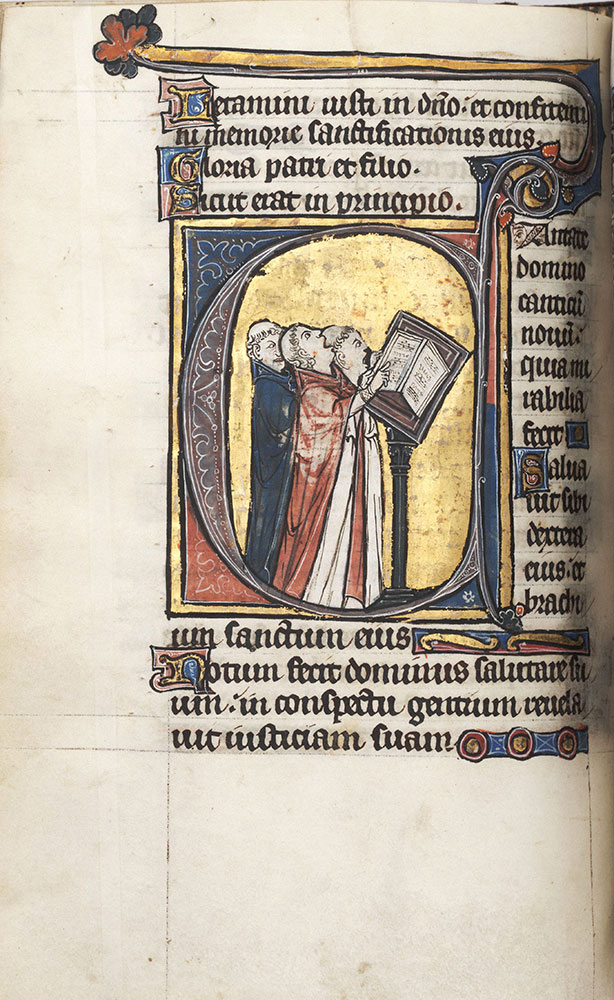 Letamini iusti in dño · et confitemi
ni memorie sanctificationis eius
Gloria patri et filio.
Sicut erat in principio.
Cantate
domino
canticũ
nouũ:
quia mi
rabilia
fecit
Salua
uit sibi
dextera
eius: et
brachi
um sanctum eius
Notum fecit dominus salutare su
um: in conspectu gentium reuela
uit iusticiam suam